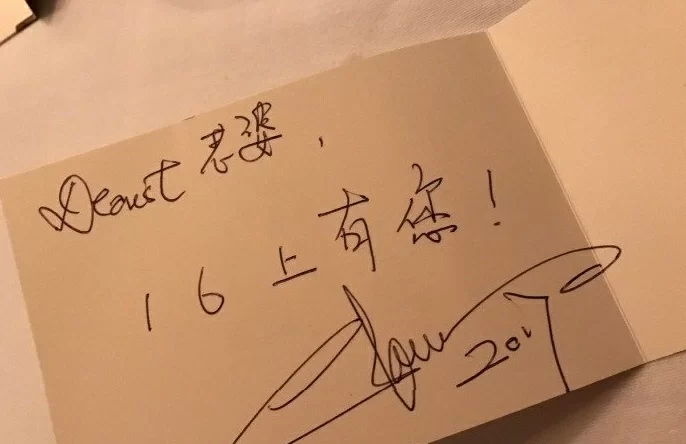 Dearest 老婆,
16上有您!
2017